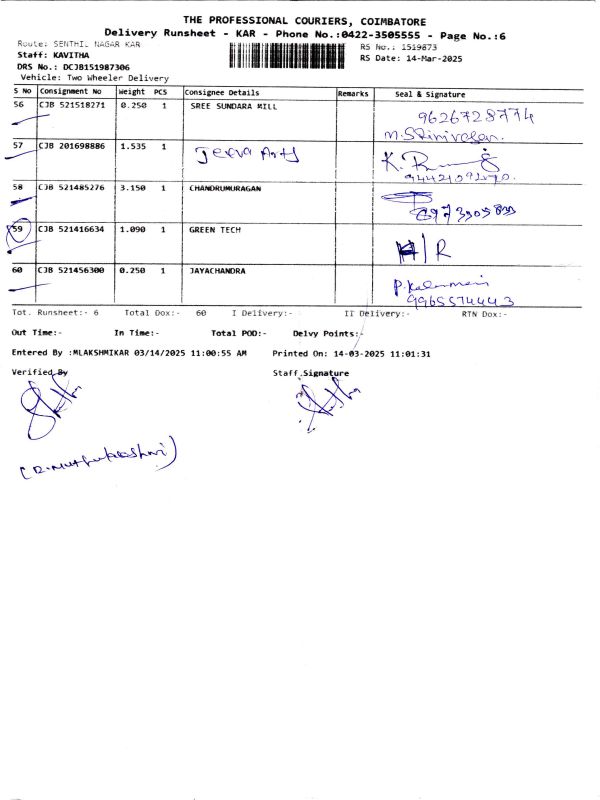 THE PROFESSIONAL COURIERS, COIMBATORE
Delivery Runsheet - KAR - Phone No.:0422-3505555 - Page No.:6
Route: SENTHIL NAGAR KAR
RS No.: 1519873
Staff: KAVITHA
RS Date: 14-Mar-2025
DRS No.: DCJB151987306
Vehicle: Two Wheeler Delivery
S No Consignment No Weight PCS Consignee Details Remarks Seal & Signature
56 CJB 521518271 0.250 1 SREE SUNDARA MILL 9626728774
M.Srinivasan.
57 CJB 201698886 1.535 1 Jeeva Arts
58 CJB 521485276 3.150 1 CHANDRUMURAGAN
59 CJB 521416634 1.090 1 GREEN TECH H/R
60 CJB 521456300 0.250 1 JAYACHANDRA
9965574443
Tot. Runsheet:- 6 Total Dox:- 60 I Delivery:- II Delivery:- RTN Dox:-
Out Time:- In Time:- Total POD:- Delvy Points:-
Entered By :MLAKSHMIKAR 03/14/2025 11:00:55 AM Printed On: 14-03-2025 11:01:31
Verified By Staff Signature